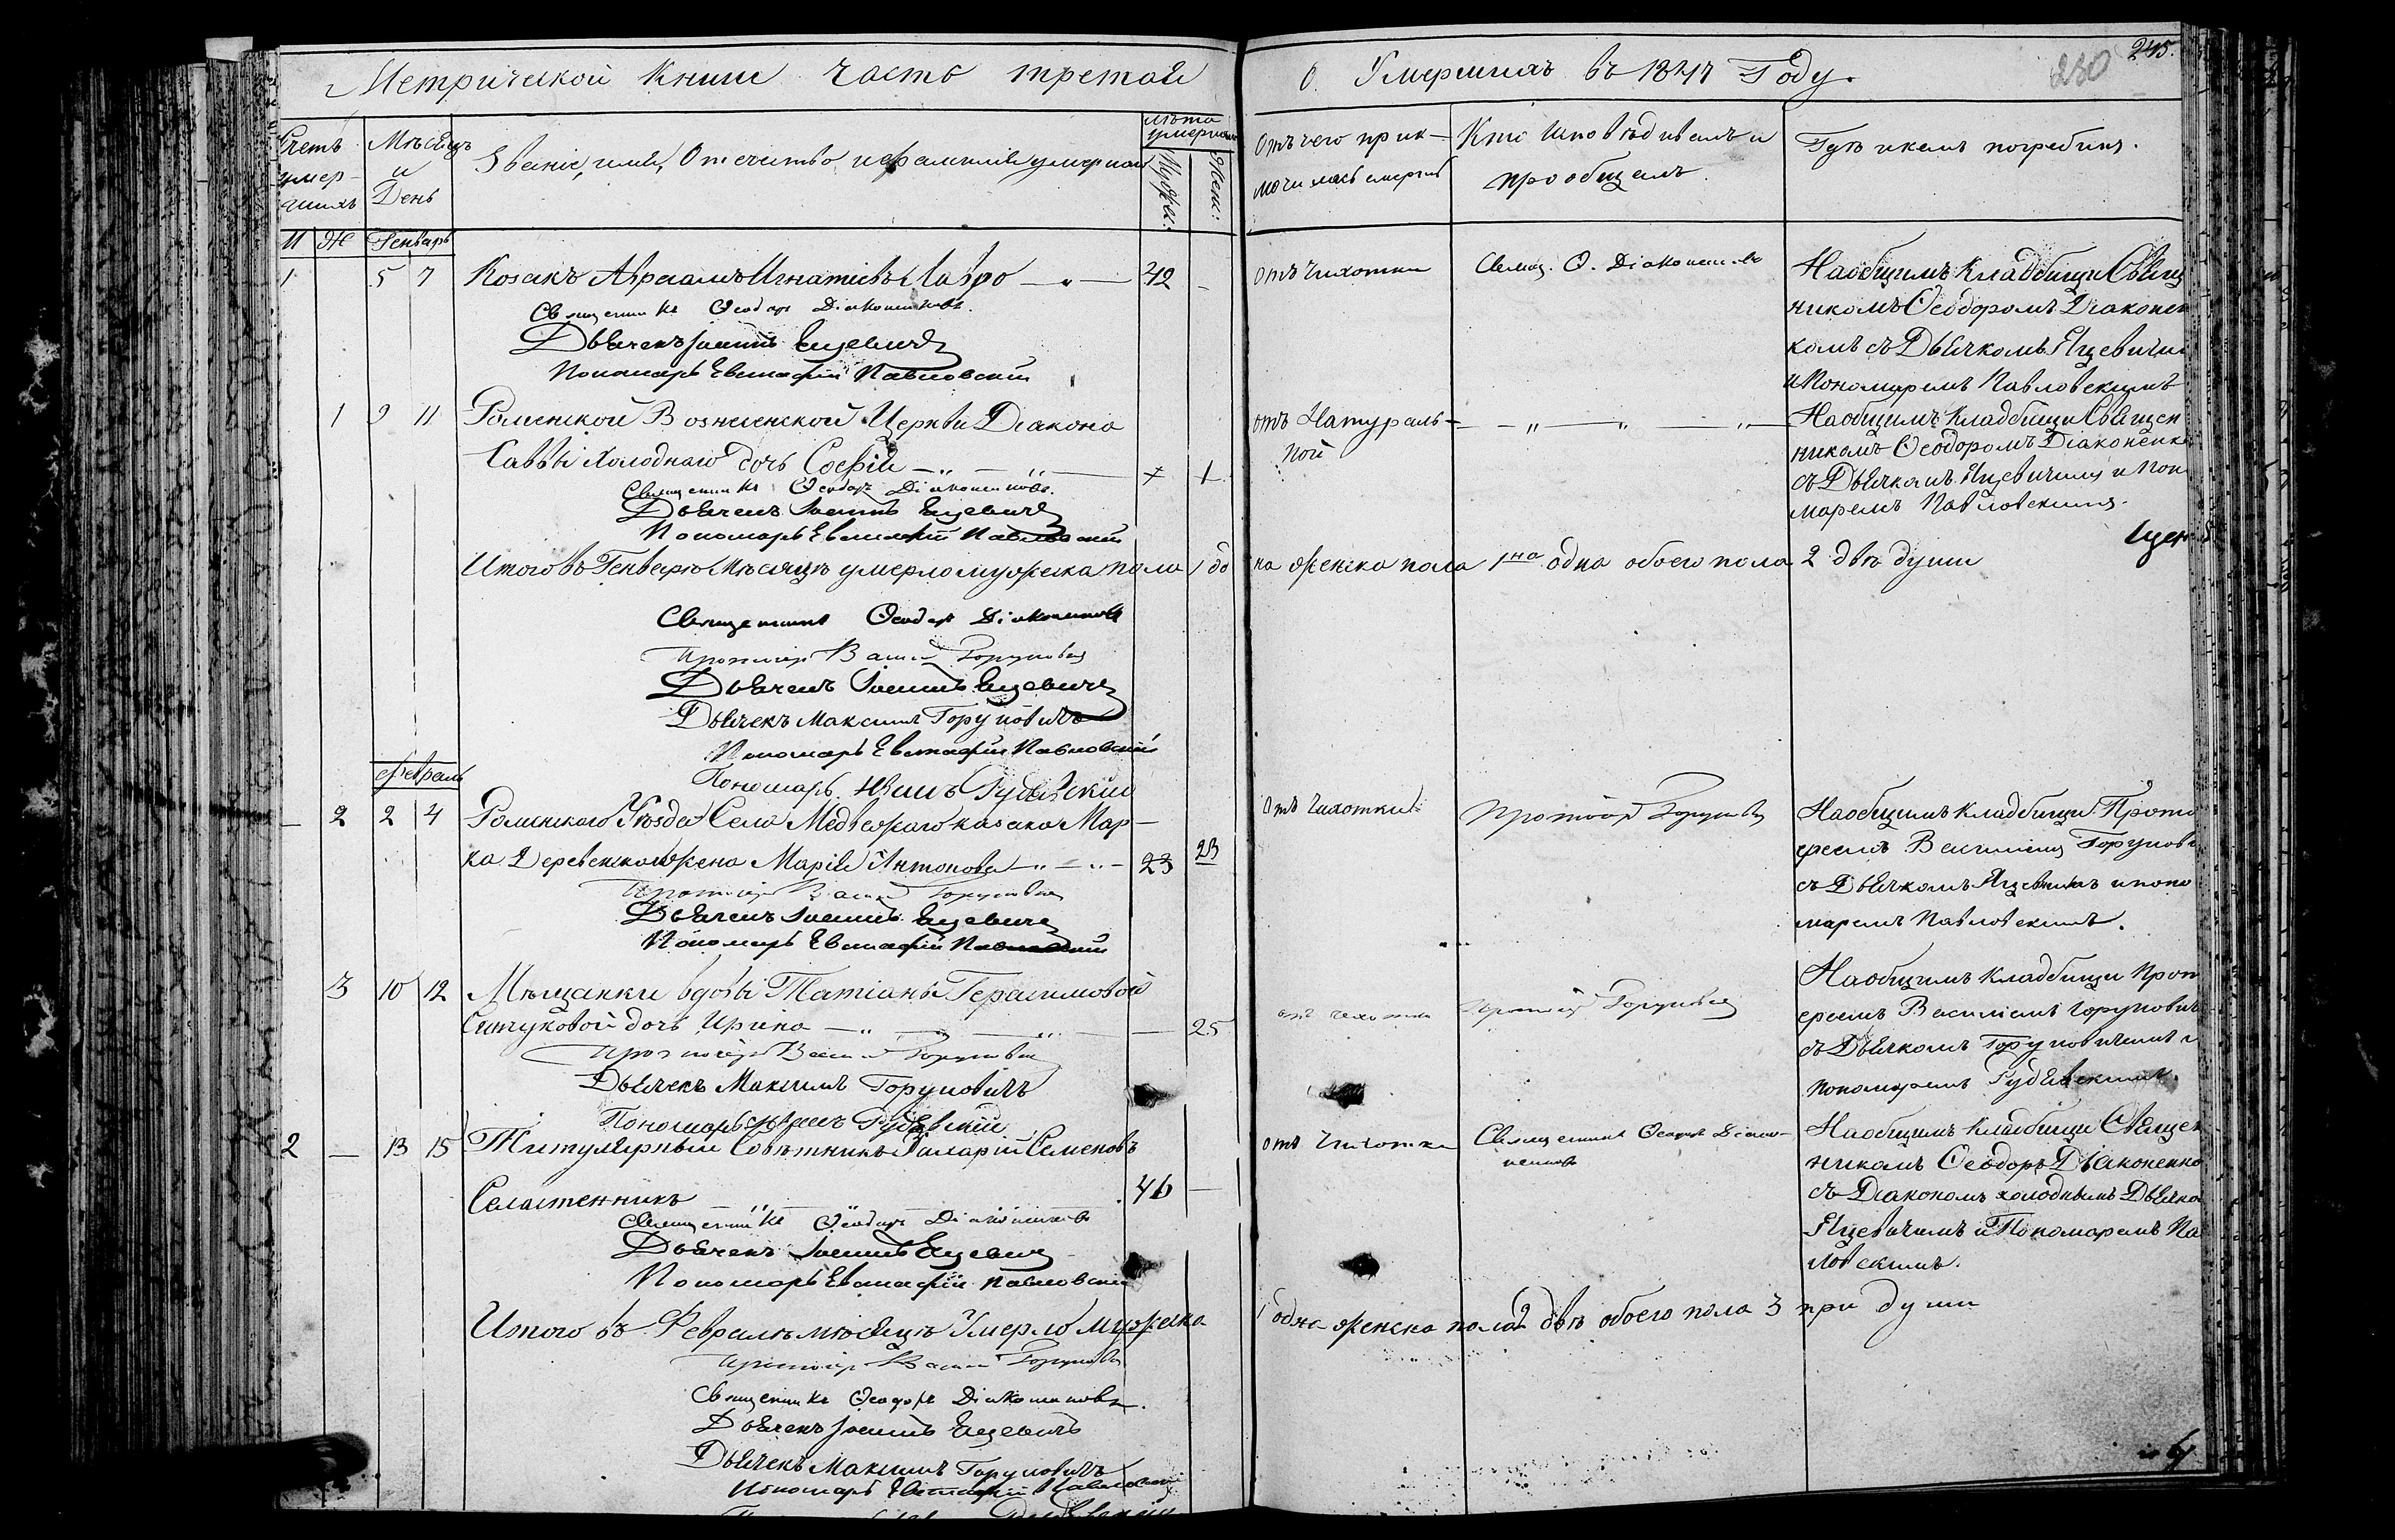 Метрической книги часть третая
О Умершихъ въ 1847 Году.
280
245.
Счетъ умер-шихъ
Мѣсяцъ и День
Званіе, имя, Отечество и фамилія умершаго
лѣта умершаго
Мужес:
Женс:
Отъ чего прик-
лючилась смерть
Кто исповѣдивалъ и
пріобщалъ
Гдѣ и кемъ погребенъ.
М Ж Генварь
1 5 7 Козакъ Авраамъ Игнатіевъ 42
Священникъ Ѳеодоръ Діаконенковъ.
Дьячекъ Іоаннъ Яцевичъ
Пономарь Евстафій Павловскій
отъ чихотки
Свящ. Ѳ. Діаконенковъ
На общимъ кладбищи Свящ
никомъ Ѳеодоромъ Діаконен
комъ съ Дьячкомъ Яцевичи
и Пономаремъ Павловскимъ
1 9 11 Роменской Вознесенской Церкви Діакона
Саввы Холоднаго дочь Софія 1
Священникъ Ѳеодоръ Діаконенковъ.
Дьячекъ Іоаннъ Яцевичъ
Пономарь Евстафій Павловскій
отъ Натураль-
ной
На общимъ кладбищи Священ
никомъ Ѳеодоромъ Діаконенко
съ Дьячкомъ Яцевичимъ и Пон
маремъ Павловскимъ.
Итого въ Генварѣ Мѣсяцѣ умерло мужеска пола 1 од
на женска пола 1на одна обоего пола 2 двѣ души
Священникъ Ѳеодоръ Діаконенковъ
Протоіерей Василій Горуновичъ
Дьячекъ Іоаннъ Яцевичъ
Дьячекъ Максимъ Горуновичъ
Пономарь Евстафій Павловскій
Пономарь
Февраль
2 2 4 Роменского Уѣзда Села Медвежаго казака Мар-
ка жена Марія Антонова 23 23
Протоіерей Василій Горуновичъ
Дьячекъ Іоаннъ Яцевичъ
Пономарь Евстафій Павловскій
Отъ чихотки
Протоіер Горуновичъ
На общимъ кладбищи Прото
ереемъ Василіемъ Горунови
съ Дьячкомъ Яцевичимъ и поно
маремъ Павловскимъ.
3 10 12 Мѣщанки вдовы Татіаны Герасимовой
дочь Ирина 25
Протоіерей Василій Горуновичъ
Дьячекъ Максимъ Горуновичъ
Пономарь
отъ чихотки
Протоіер Горуновичъ
На общимъ кладбищи Прот
ереемъ Василіемъ Горунович
съ Дьячкомъ Горуновичемъ и
пономаремъ
2 — 13 15 Титулярный Совѣтникъ Семеновъ
Селастенникъ 46 —
Священникъ Ѳеодоръ Діаконенковъ
Дьячекъ Іоаннъ Яцевичъ
Пономарь Евстафій Павловскій
отъ Чихотки
Священникъ Ѳеодоръ Діако-
ненковъ
На общимъ кладбищи Священ
никомъ Ѳеодоръ Діаконенко
съ Діакономъ холоднымъ Дьячко
Яцевичимъ и Пономаремъ Па
ловскимъ.
Итого въ Февралѣ мѣсяцѣ Умерло мужеска
1 одна женска пола 2 двѣ обоего пола 3 три души
Протоіерей Василій Горуновичъ
Священникъ Ѳеодоръ Діаконенковъ.
Дьячекъ Іоаннъ Яцевичъ
Дьячекъ Максимъ Горуновичъ
Пономарь Евстафій Павловскій